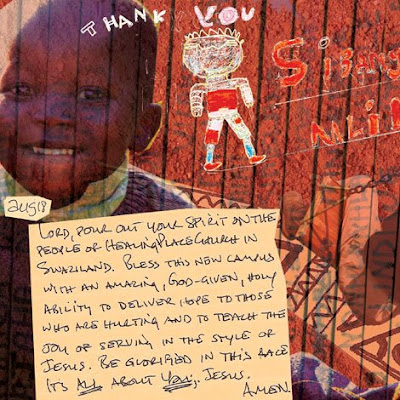 THANK YOU
Aug 18
LORD, POUR OUT YOUR SPIRIT ON THE
PEOPLE OF HEALING PLACE CHURCH IN
SWAZILAND. BLESS THIS NEW CAMPUS
WITH AN AMAZING, GOD-GIVEN, HOLY
ABILITY TO DELIVER HOPE TO THOSE
WHO ARE HURTING AND TO TEACH THE
JOY OF SERVING IN THE STYLE OF
JESUS. BE GLORIFIED IN THIS PLACE
IT'S ALL ABOUT YOU, JESUS.
AMEN.